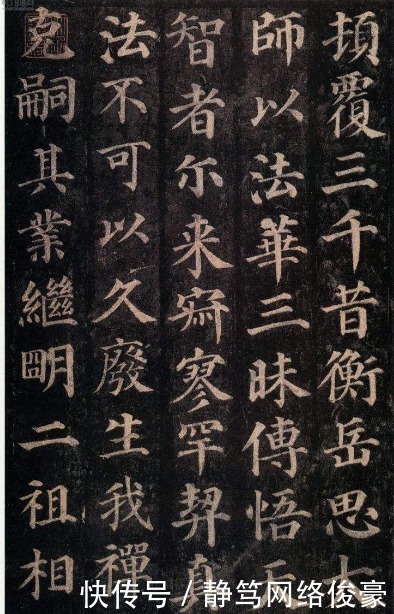 頂覆三千昔衡岳思
師以法華三昧傳悟
智者尔来寂寥罕契真
法不可以久廢生我禪
克嗣其業繼明二祖相
快传号 / 静笃网络俊豪